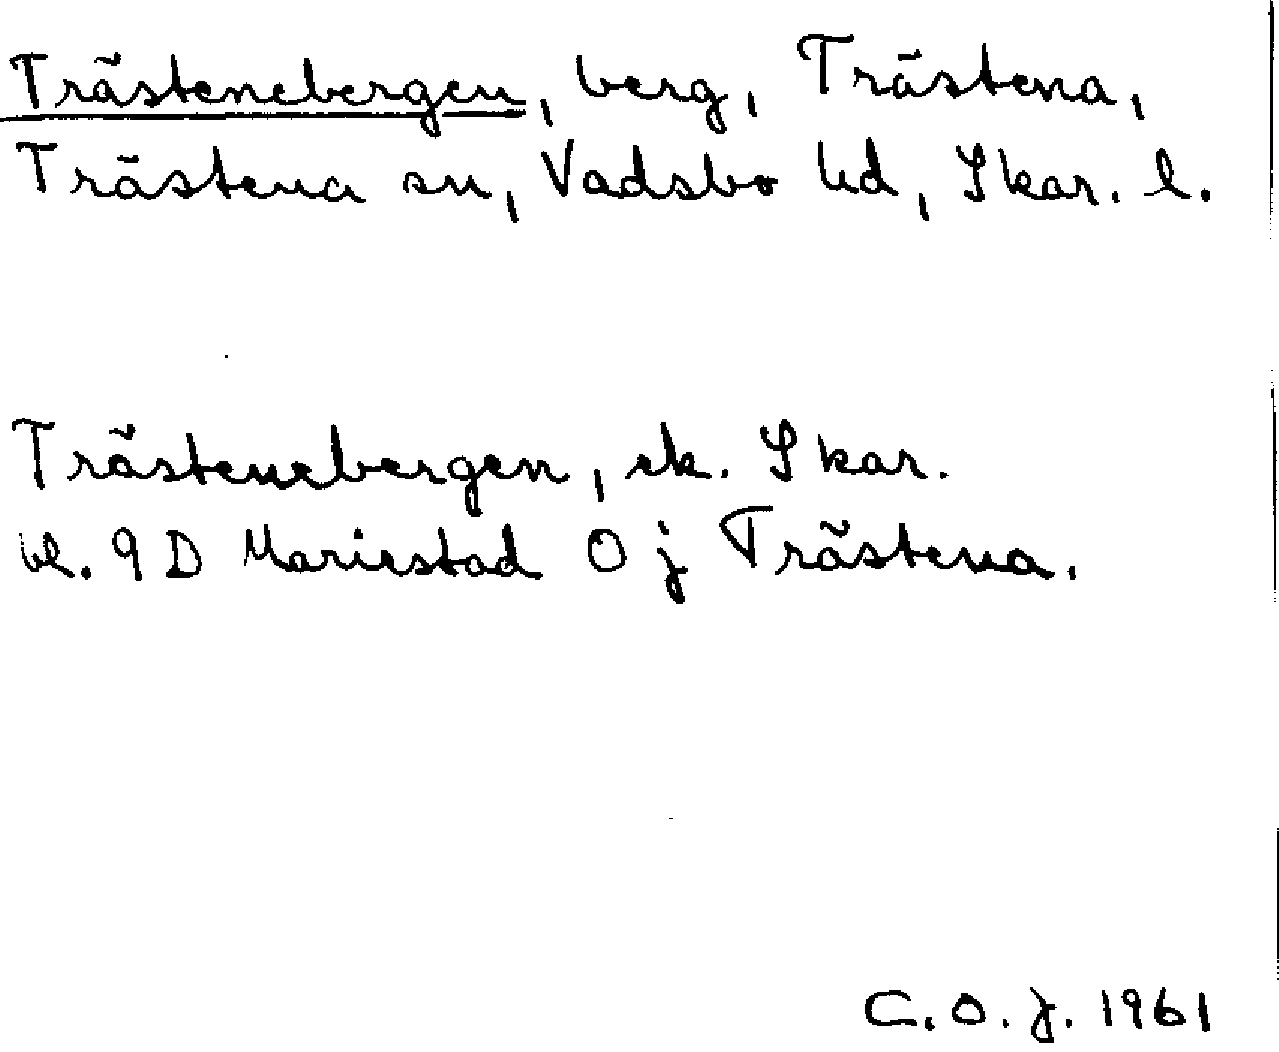 Trästenebergen, berg, Trästena,
Trästena sn, Vadsbo hd, Skar. l.
Trästenebergen, ek. Skar.
bl. 9 D Mariestad O j Trästena.
C. O. J. 1961